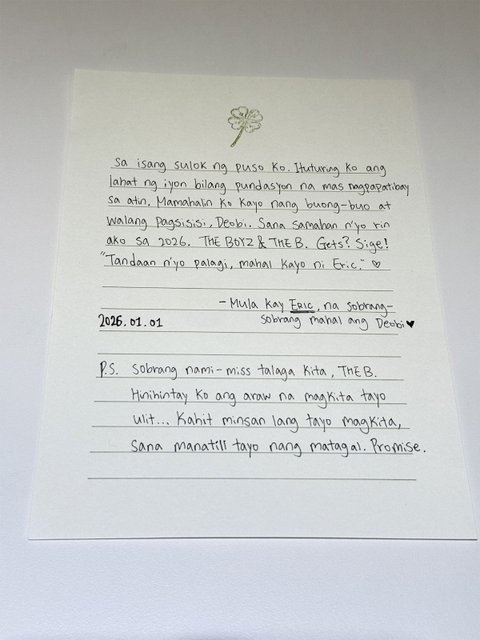 sa isang sulok ng puso ko. Ituturing ko ang
lahat ng iyon bilang pundasyon na mas nagpapatibay
sa atin. Mamahalin ko kayo nang buong-buo at
walang pagsisisi, Deobi. Sana samahan n'yo rin
ako sa 2026. THE BOYZ & THE B. Gets? Sige!
"Tandaan n'yo palagi, mahal kayo ni Eric." ♡
- Mula kay ERIC, na sobrang-
sobrang mahal ang Deobi ♥
2026.01.01
P.S. Sobrang nami-miss talaga kita, THE B.
Hinihintay ko ang araw na magkita tayo
ulit... Kahit minsan lang tayo magkita,
sana manatili tayo nang matagal. Promise.